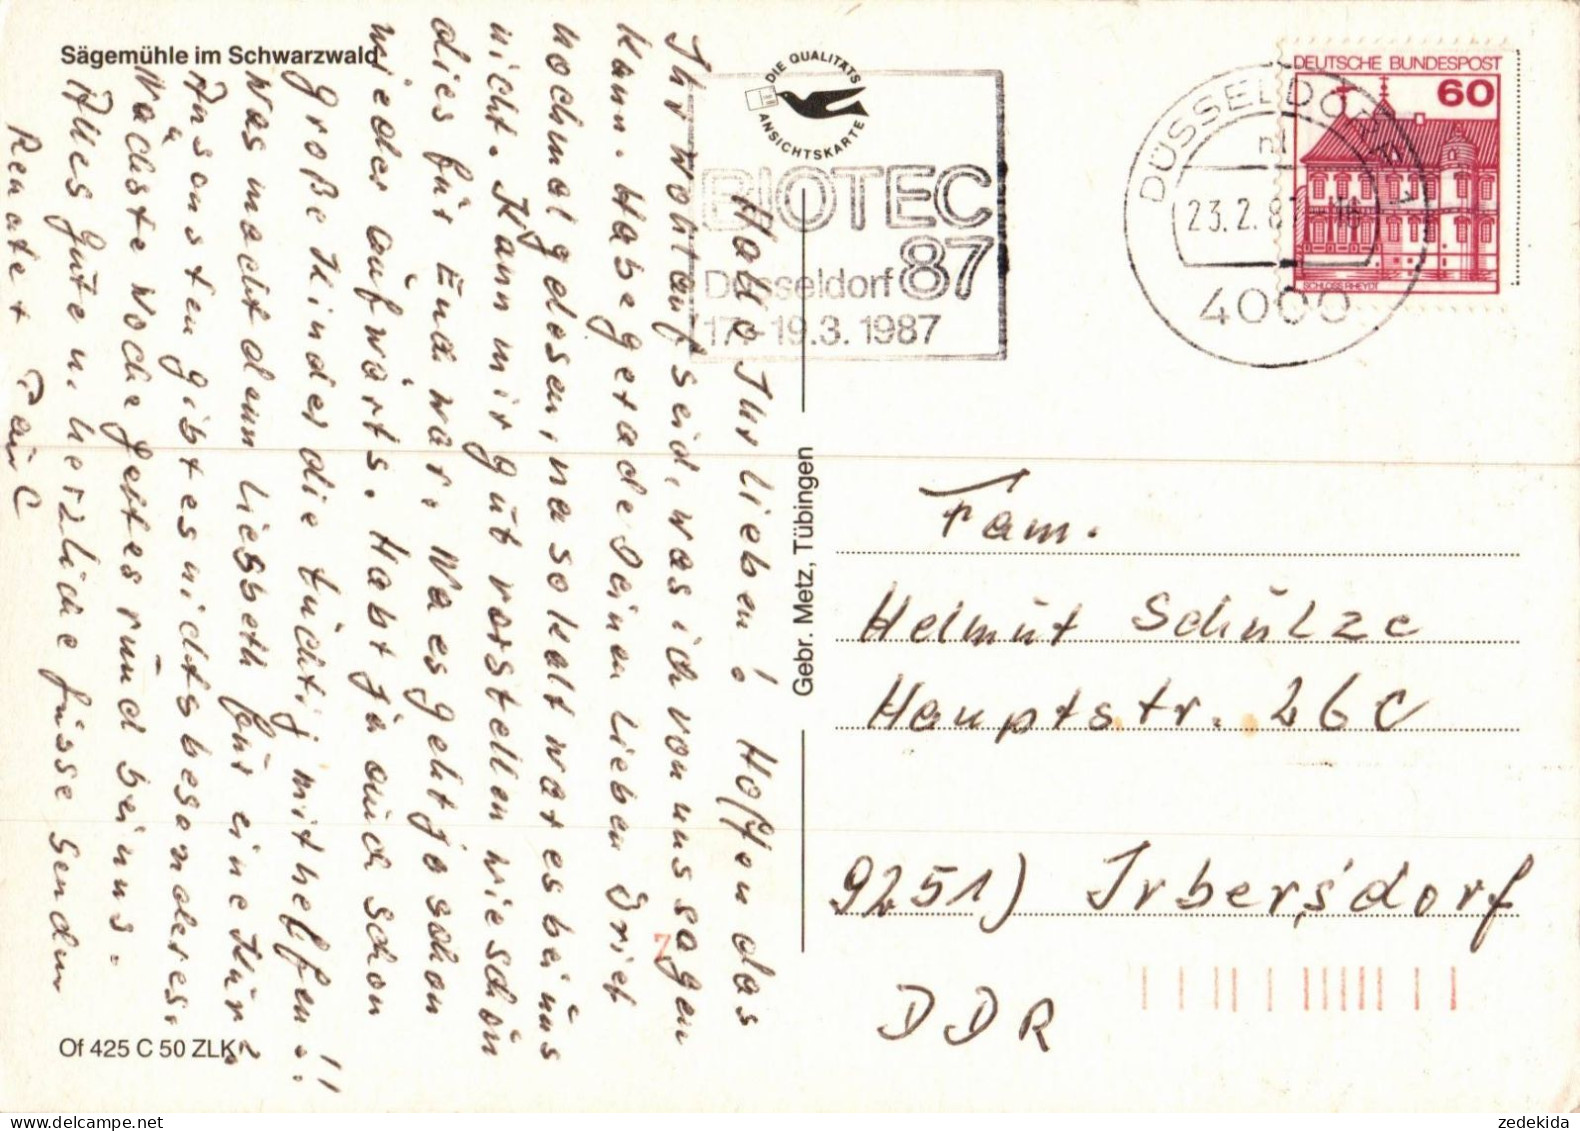 Sägemühle im Schwarzwald
DIE QUALITÄTS
ANSICHTSKARTE
BIOTEC
87
Düsseldorf
17.-19.3. 1987
DÜSSELDORF
23.2.87
4000
DEUTSCHE BUNDESPOST
60
SCHLOSS RHEYDT
Hallo Ihr lieben! Hoffen das
Ihr Wohlauf seid, was ich von uns sagen
kann. Habe gerade Deinen lieben Brief
nochmal gelesen, na so kalt war es bei uns
nicht. Kann mir gut vorstellen wie schön
dies für Euch war. Na es geht jo schon
wieder aufwärts. Habt ja auch schon
große Kinder die tüchtig mithelfen.!!
Was macht denn Liesbeth für eine Kur?
Ansonsten gibt es nichts besonderes.
Nächste Woche geht es rund bei uns.
Alles gute u. herzliche Grüsse senden
Renate + Paul
Gebr. Metz, Tübingen
Fam.
Helmut Schulze
Hauptstr. 26C
9251) Irbersdorf
DDR
Of 425 C 50 ZLK
zedekida